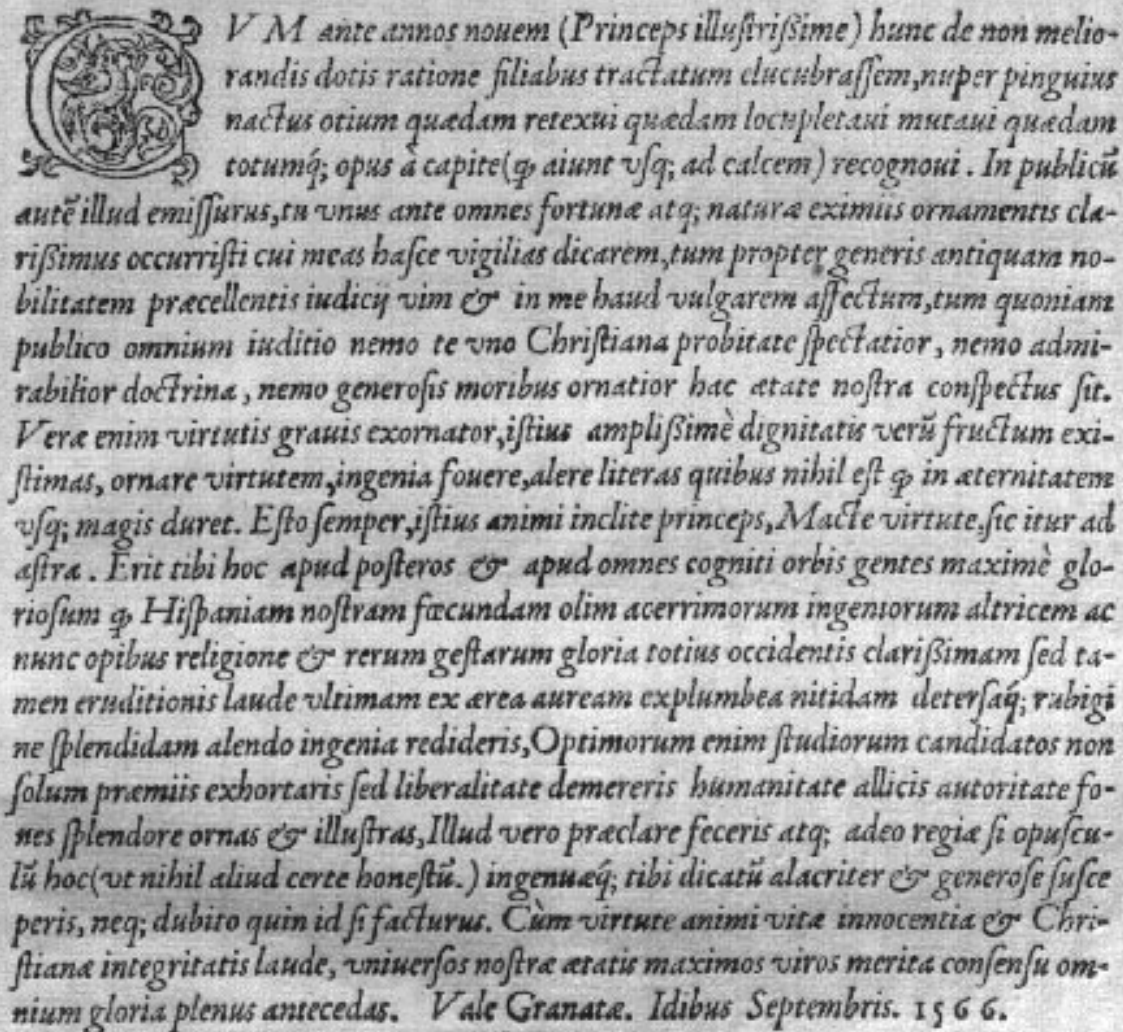 CVM ante annos nouem (Princeps illuſtriſsime) hunc de non melio-
randis dotis ratione filiabus tractatum elucubraſſem, nuper pinguius
nactus otium quædam retexui quædam locupletaui mutaui quædam
totumq́; opus à capite (ꝙ aiunt vſq; ad calcem) recognoui. In publicū
autē illud emiſſurus, tu vnus ante omnes fortunæ atq; naturæ eximiis ornamentis cla-
riſsimus occurriſti cui meas haſce vigilias dicarem, tum propter generis antiquam no-
bilitatem præcellentis iudicij vim & in me haud vulgarem affectum, tum quoniam
publico omnium iuditio nemo te vno Chriſtiana probitate ſpectatior, nemo admi-
rabilior doctrina, nemo generoſis moribus ornatior hac ætate noſtra conſpectus ſit.
Veræ enim virtutis grauis exornator, iſtius ampliſsimè dignitatis verū fructum exi-
ſtimas, ornare virtutem, ingenia fouere, alere literas quibus nihil eſt ꝙ in æternitatem
vſq; magis duret. Eſto ſemper, iſtius animi inclite princeps, Macte virtute, ſic itur ad
aſtra. Erit tibi hoc apud poſteros & apud omnes cogniti orbis gentes maximè glo-
rioſum ꝙ Hiſpaniam noſtram fœcundam olim acerrimorum ingeniorum altricem ac
nunc opibus religione & rerum geſtarum gloria totius occidentis clariſsimam ſed ta-
men eruditionis laude vltimam ex ærea auream explumbea nitidam deterſaq́; rubigi
ne ſplendidam alendo ingenia redideris, Optimorum enim ſtudiorum candidatos non
ſolum præmiis exhortaris ſed liberalitate demereris humanitate allicis autoritate fo-
nes ſplendore ornas & illuſtras, Illud vero præclare feceris atq; adeo regiæ ſi opuſcu-
lū hoc (vt nihil aliud certe honeſtū.) ingenuæq́; tibi dicatū alacriter & generoſe ſuſce
peris, neq; dubito quin id ſi facturus. Cùm virtute animi vitæ innocentia & Chri-
ſtianæ integritatis laude, vniuerſos noſtræ ætatis maximos viros merita conſenſu om-
nium gloria plenus antecedas. Vale Granatæ. Idibus Septembris. 1566.